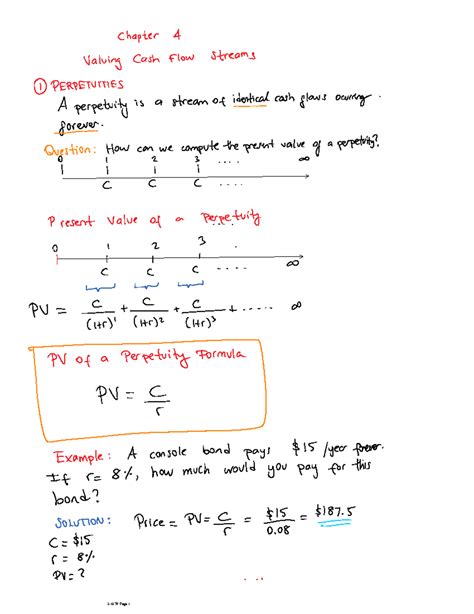 Chapter 4
Valuing Cash Flow Streams
① PERPETUITIES
A perpetuity is a stream of identical cash flows ocurring
forever.
Question: How can we compute the present value of a perpetuity?
0 1 2 3 .... ∞
C C C ....
Present Value of a Perpetuity
0 1 2 3 ....
C C C .... ∞
PV = C/(1+r)¹ + C/(1+r)² + C/(1+r)³ + ..... ∞
PV of a Perpetuity Formula
PV = C/r
Example: A console bond pays $15 /year forever.
If r = 8%, how much would you pay for this
bond?
SOLUTION: Price = PV = C/r = $15/0.08 = $187.5
C = $15
r = 8%
PV = ?